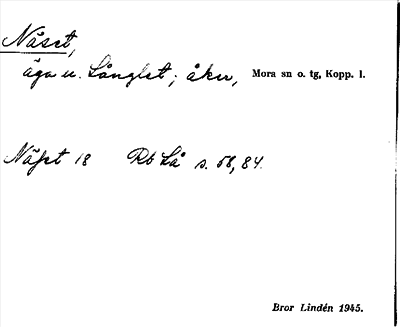 Näset,
äga u. Långlet; åker, Mora sn o. tg, Kopp. l.
Näset 18 Rb Lå s. 58, 84.
Bror Lindén 1945.